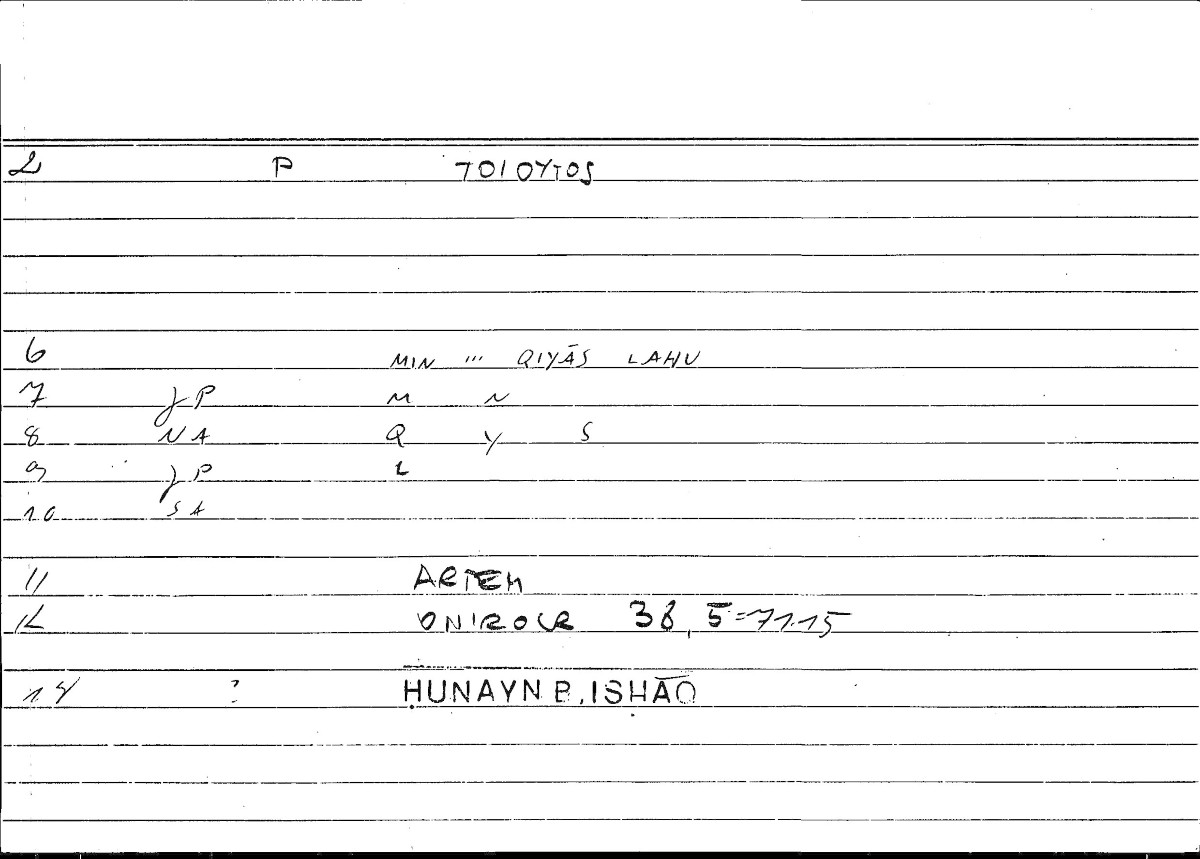 2 P TOIOYTOS
6 MIN ... QIYĀS LAHU
7 JP M N
8 NA Q Y S
9 JP L
10 SA
11 ARTEM
12 ONIROCR 38,5=71.15
14 ? ḤUNAYN B. ISḤĀQ